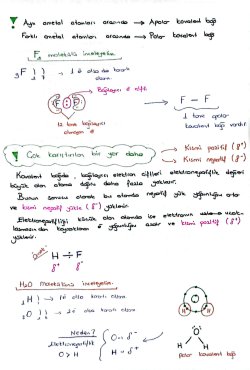 ! Aynı ametal atomları arasında → Apolar kovalent bağ
Farklı ametal atomları arasında → Polar kovalent bağ
F₂ molekülünü inceleyelim.
₉F ) ) → 1 e⁻ alsa da kararlı olamaz.
Bağlayıcı e⁻ çifti
F F
F — F
12 tane bağlayıcı olmayan e⁻
1 tane apolar kovalent bağ vardır.
! Çok karıştırılan bir yer daha
→ Kısmi pozitif (δ⁺)
→ Kısmi negatif (δ⁻)
Kovalent bağda, bağlayıcı elektron çiftleri elektronegatiflik değeri
büyük olan atoma doğru daha fazla yaklaşır.
Bunun sonucu olarak bu atomda negatif yük yoğunluğu artar
ve kısmi negatif yükle (δ⁻) yüklenir.
Elektronegatifliği küçük olan atomda ise elektronun uzaklaşmasından kaynaklanan yoğunluğu azalır ve kısmi pozitif (δ⁺)
yüklenir.
Örnek:
H ÷ F
δ⁺ δ⁻
H₂O molekülünü inceleyelim.
₁H ) → 1 e⁻ alsa kararlı olur.
₈O ) )
O
H H
Neden?
Elektronegatiflik
O > H
O = δ⁻
H = δ⁺
O
H H
polar kovalent bağ